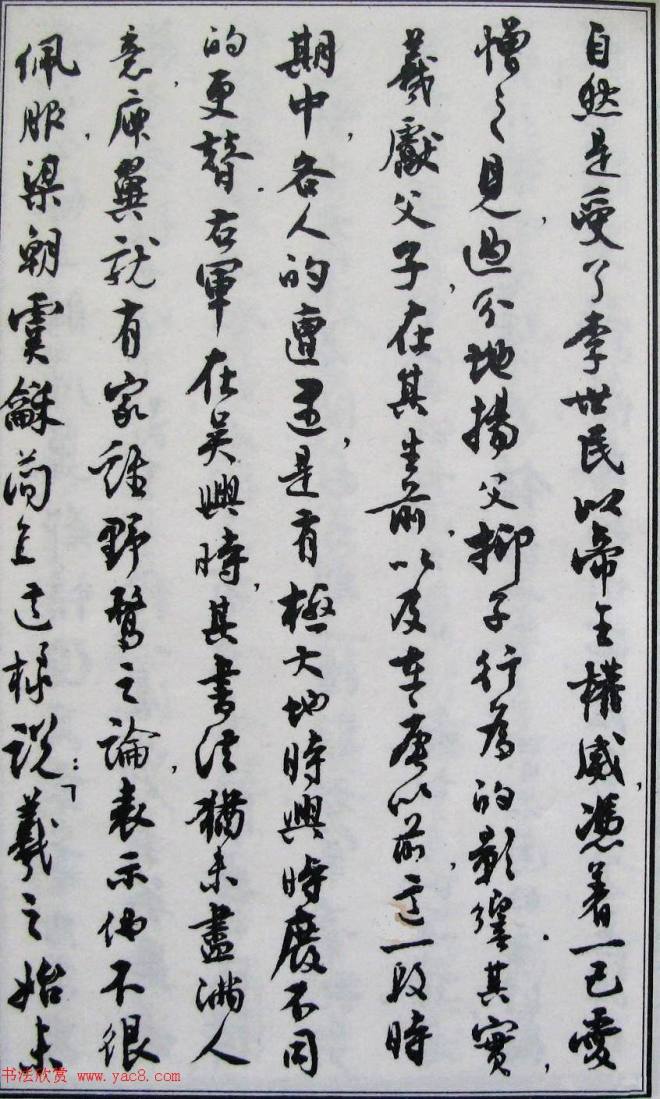 自然是受了李世民以帝王權威，憑着一己愛
憎之見，過分地揚父抑子行為的影響。其實，
羲獻父子，在其生前，以及在唐以前，這一段時
期中，各人的遭遇，是有極大地時興時廢不同
的更替。右軍在吴興時，其書法猶未盡滿人
意，庾翼就有家雞野鶩之論，表示他不很
佩服，梁朝虞龢簡直這樣説：「羲之始未
书法欣赏 www.yac8.com